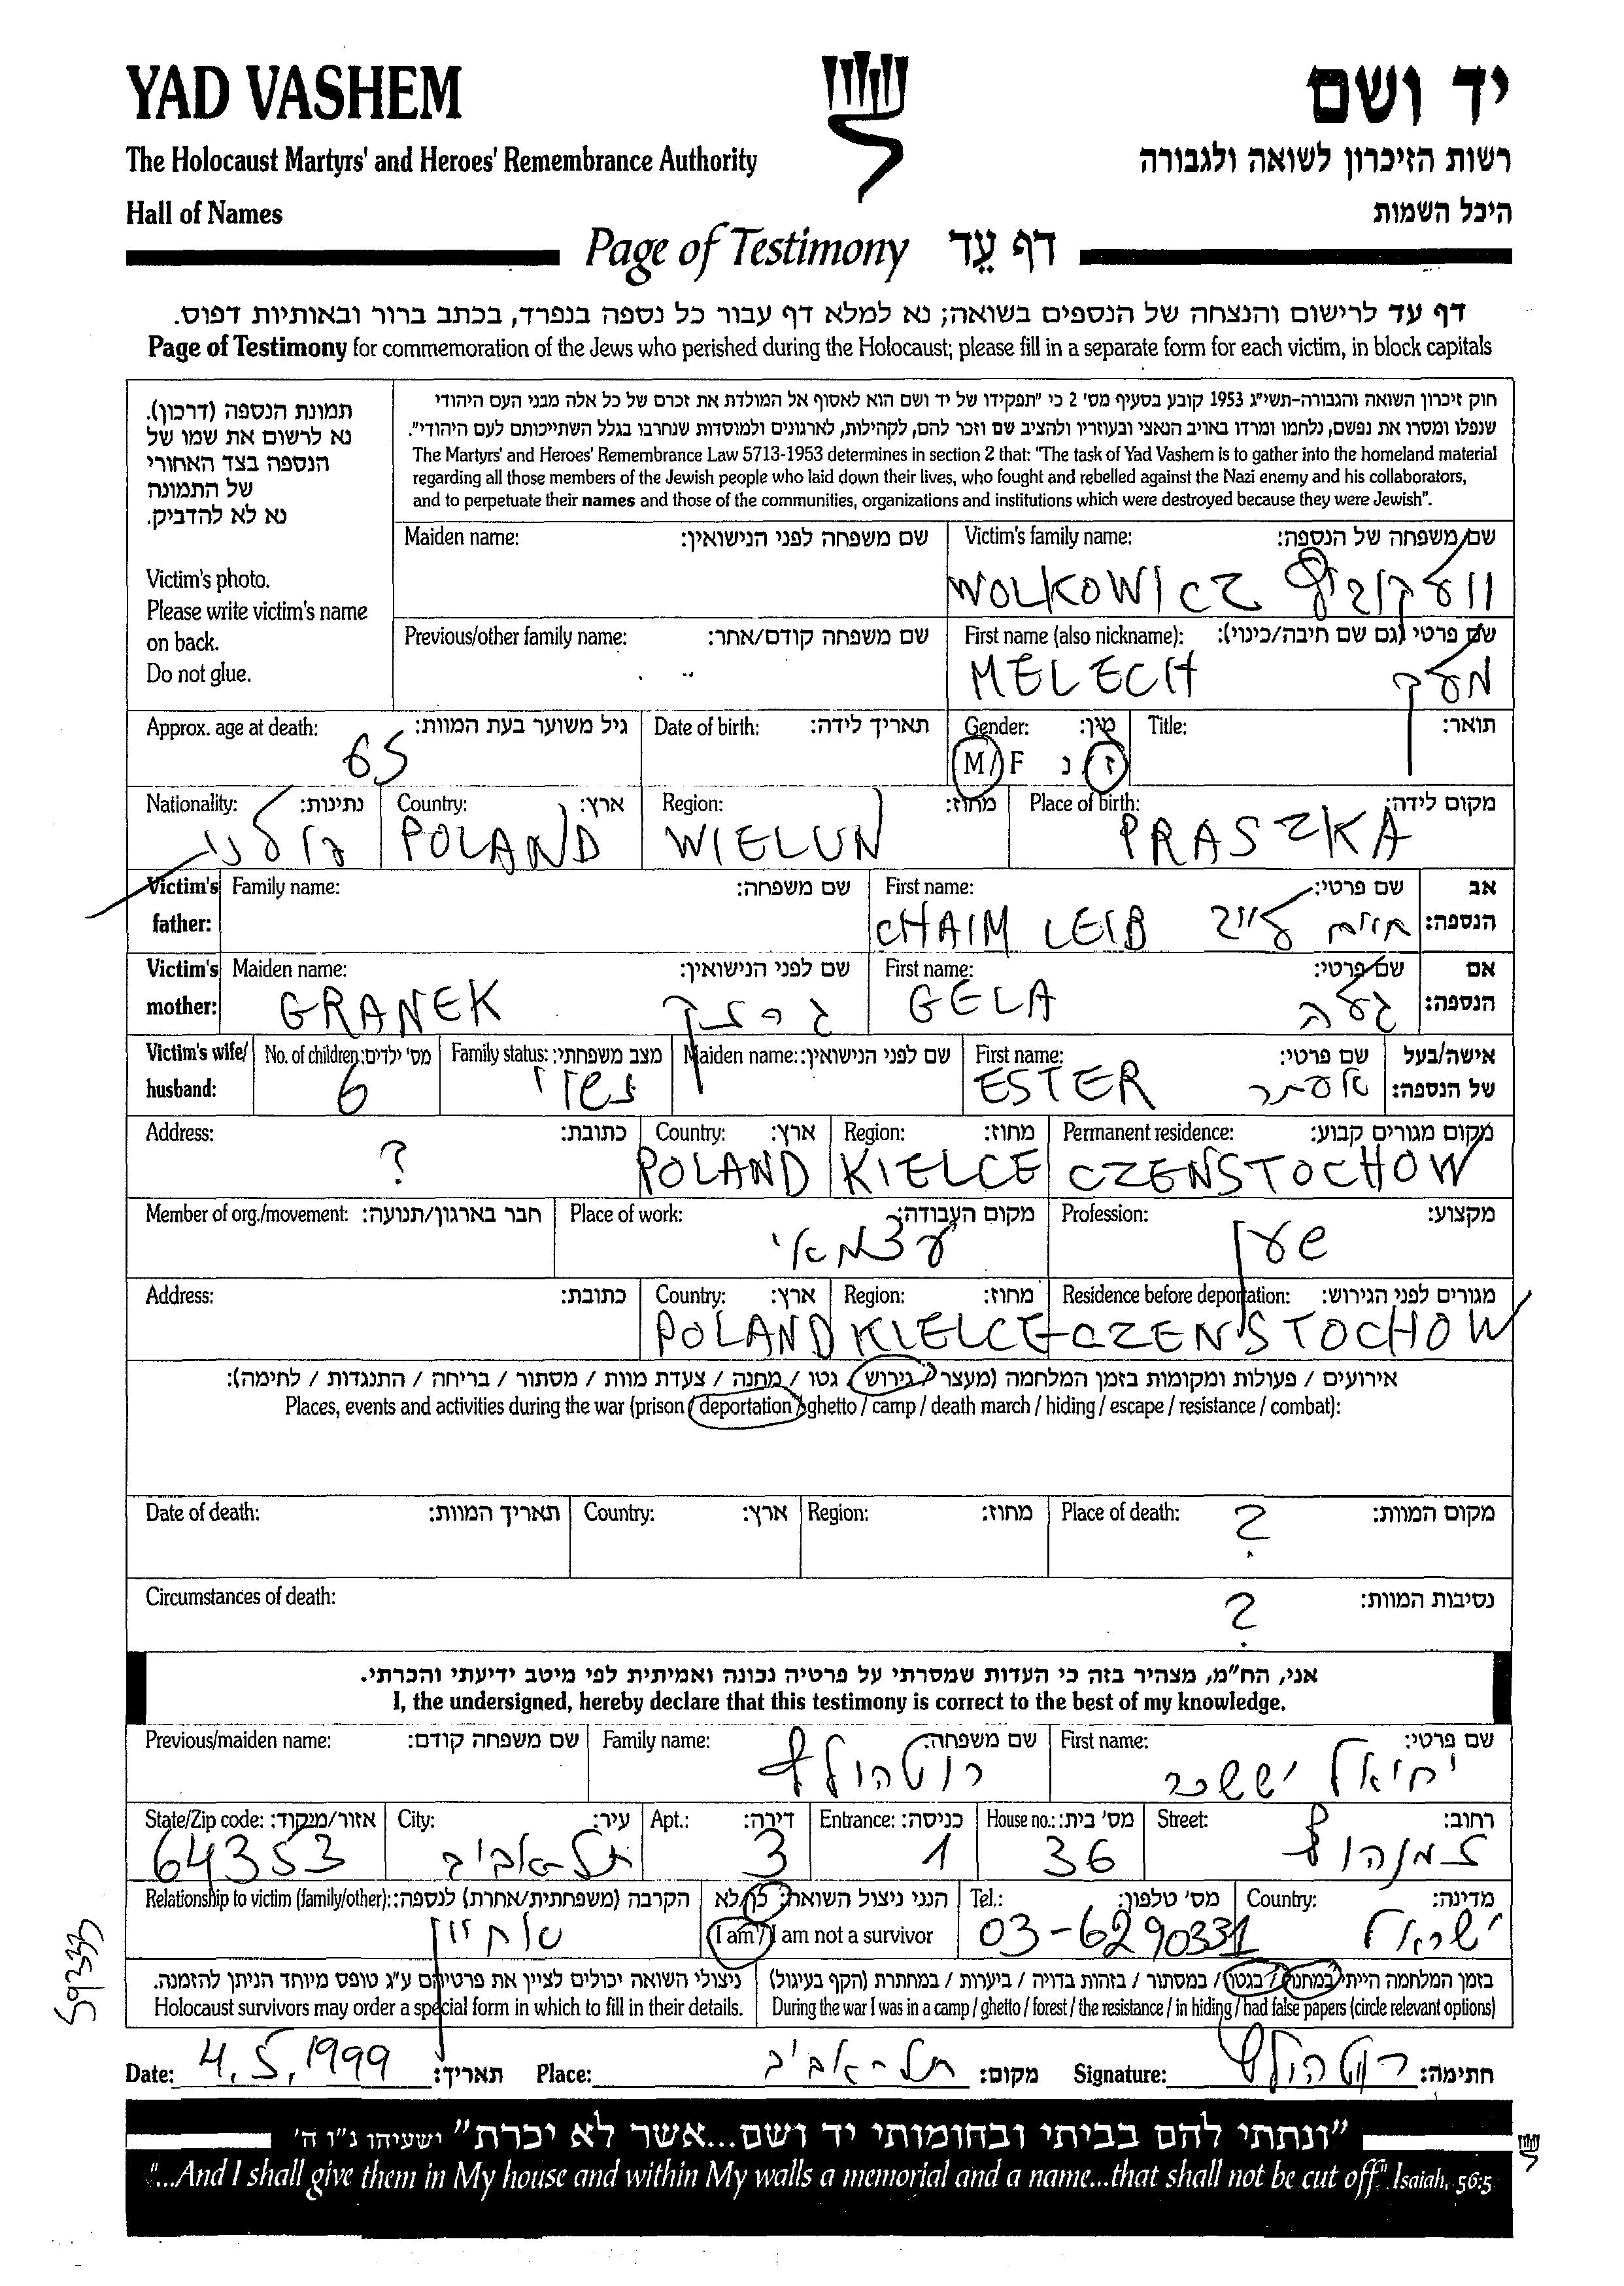 YAD VASHEM יד ושם
The Holocaust Martyrs' and Heroes' Remembrance Authority רשות הזיכרון לשואה ולגבורה
Hall of Names היכל השמות
Page of Testimony דף עֵד
דף עד לרישום והנצחה של הנספים בשואה; נא למלא דף עבור כל נספה בנפרד, בכתב ברור ובאותיות דפוס.
Page of Testimony for commemoration of the Jews who perished during the Holocaust; please fill in a separate form for each victim, in block capitals
תמונת הנספה (דרכון).
נא לרשום את שמו של
הנספה בצד האחורי
של התמונה
נא לא להדביק.
Victim's photo.
Please write victim's name
on back.
Do not glue.
חוק זיכרון השואה והגבורה-תשי"ג 1953 קובע בסעיף מס' 2 כי "תפקידו של יד ושם הוא לאסוף אל המולדת את זכרם של כל אלה מבני העם היהודי
שנפלו ומסרו את נפשם, נלחמו ומרדו באויב הנאצי ובעוזריו ולהציב שם וזכר להם, לקהילות, לארגונים ולמוסדות שנחרבו בגלל השתייכותם לעם היהודי".
The Martyrs' and Heroes' Remembrance Law 5713-1953 determines in section 2 that: "The task of Yad Vashem is to gather into the homeland material
regarding all those members of the Jewish people who laid down their lives, who fought and rebelled against the Nazi enemy and his collaborators,
and to perpetuate their names and those of the communities, organizations and institutions which were destroyed because they were Jewish".
Maiden name: שם משפחה לפני הנישואין: Victim's family name: שם משפחה של הנספה:
WOLKOWICZ וולקוביץ
Previous/other family name: שם משפחה קודם/אחר: First name (also nickname): שם פרטי (גם שם חיבה/כינוי):
MELECH מלך
Approx. age at death: גיל משוער בעת המוות: Date of birth: תאריך לידה: Gender: מין: Title: תואר:
65 M/F ז/נ
Nationality: נתינות: Country: ארץ: Region: מחוז: Place of birth: מקום לידה:
פולני POLAND WIELUN PRASZKA
Victim's father: Family name: שם משפחה: First name: שם פרטי: אב הנספה:
CHAIM LEIB חיים לייב
Victim's mother: Maiden name: שם לפני הנישואין: First name: שם פרטי: אם הנספה:
GRANEK גרנק GELA גלה
Victim's wife/ husband: No. of children: מס' ילדים: Family status: מצב משפחתי: Maiden name: שם לפני הנישואין: First name: שם פרטי: אישה/בעל של הנספה:
6 נשוי ESTER אסתר
Address: כתובת: Country: ארץ: Region: מחוז: Permanent residence: מקום מגורים קבוע:
? POLAND KIELCE CZENSTOCHOW
Member of org./movement: חבר בארגון/תנועה: Place of work: מקום העבודה: Profession: מקצוע:
עצמאי שען
Address: כתובת: Country: ארץ: Region: מחוז: Residence before deportation: מגורים לפני הגירוש:
POLAND KIELCE CZENSTOCHOW
אירועים / פעולות ומקומות בזמן המלחמה (מעצר / גירוש / גטו / מחנה / צעדת מוות / מסתור / בריחה / התנגדות / לחימה):
Places, events and activities during the war (prison / deportation / ghetto / camp / death march / hiding / escape / resistance / combat):
Date of death: תאריך המוות: Country: ארץ: Region: מחוז: Place of death: מקום המוות:
?
Circumstances of death: נסיבות המוות:
?
אני, הח"מ, מצהיר בזה כי העדות שמסרתי על פרטיה נכונה ואמיתית לפי מיטב ידיעתי והכרתי.
I, the undersigned, hereby declare that this testimony is correct to the best of my knowledge.
Previous/maiden name: שם משפחה קודם: Family name: שם משפחה: First name: שם פרטי:
רוטהולץ יחיאל יששכר
State/Zip code: אזור/מיקוד: City: עיר: Apt.: דירה: Entrance: כניסה: House no.: מס' בית: Street: רחוב:
64353 תל-אביב 3 1 36 זמנהוף
Relationship to victim (family/other): הקרבה (משפחתית/אחרת) לנספה: הנני ניצול השואה: כן/לא Tel.: מס' טלפון: Country: מדינה:
אחיין I am / I am not a survivor 03-6290331 ישראל
ניצולי השואה יכולים לציין את פרטיהם ע"ג טופס מיוחד הניתן להזמנה. בזמן המלחמה הייתי במחנה / בגטו / במסתור / בזהות בדויה / ביערות / במחתרת (הקף בעיגול)
Holocaust survivors may order a special form in which to fill in their details. During the war I was in a camp / ghetto / forest / the resistance / in hiding / had false papers (circle relevant options)
Date: 4.5.1999 תאריך: Place: תל-אביב מקום: Signature: רוטהולץ חתימה:
"ונתתי להם בביתי ובחומותי יד ושם...אשר לא יכרת" ישעיהו נ"ו ה'
"...And I shall give them in My house and within My walls a memorial and a name...that shall not be cut off." Isaiah, 56:5